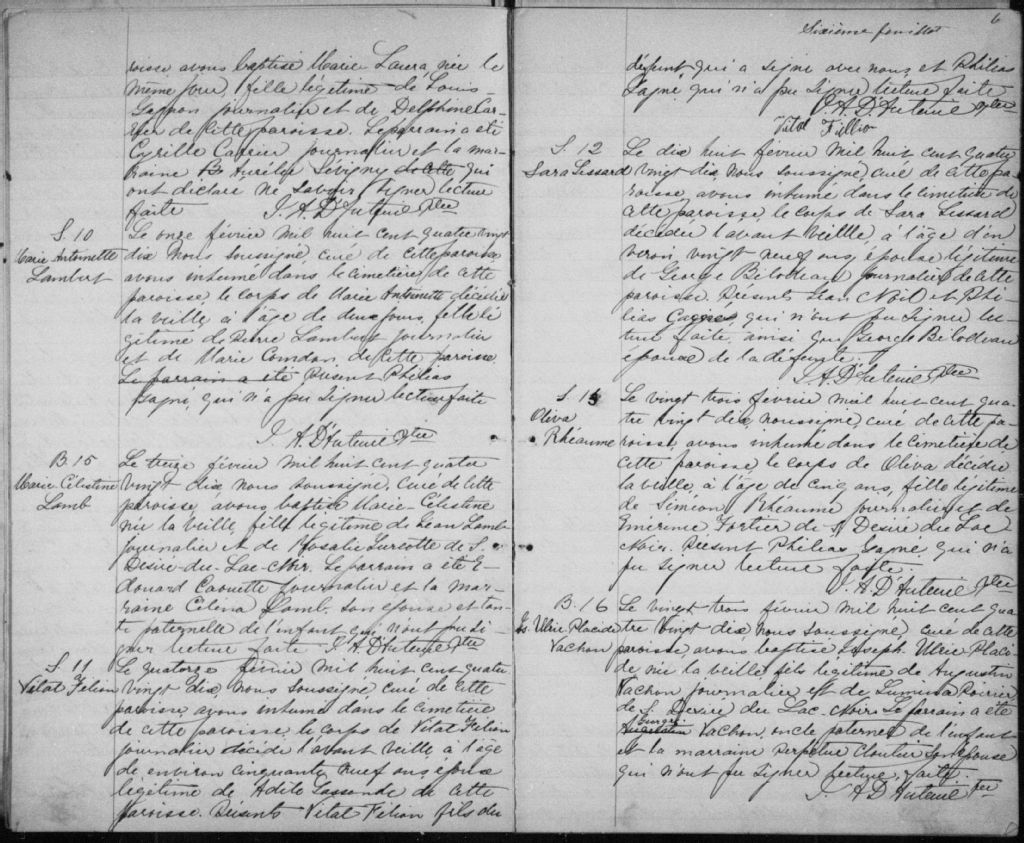 roisse avons baptisé Marie Laura, née le
même jour, fille légitime de Louis
Gagnon journalier et de Delphine Car-
rier de cette paroisse. Le parrain a été
Cyrille Carrier journalier et la mar-
raine Aurélie Sévigny de cette qui
ont déclaré ne savoir signer lecture
faite J. A. D'Auteuil Ptre
S. 10
Marie Antoinette
Lambert
Le onze février mil huit cent quatre vingt
dix nous soussigné, curé de cette paroisse
avons inhumé dans le cimetière de cette
paroisse le corps de Marie Antoinette décédée
la veille, à l'âge de deux jours, fille lé
gitime de Pierre Lambert journalier
et de Marie de cette paroisse.
Le parrain a été Présent Philias
Gagné, qui n'a pu signer lecture faite
J. A. D'Auteuil Ptre
B. 15
Marie Célestine
Lamb
Le treize février mil huit cent quatre
vingt dix nous soussigné, curé de cette
paroisse, avons baptisé Marie-Célestine
née la veille, fille légitime de Jean Lamb
journalier et de Rosalie Turcotte de S.
Désiré-du-Lac-Noir. Le parrain a été E-
douard Caouette journalier et la mar-
raine Célena Lamb, son épouse et tan-
te paternelle de l'enfant qui n'ont pu si-
gner lecture faite J. A. D'Auteuil Ptre
S. 11
Vital Filion
Le quatorze février mil huit cent quatre
vingt dix, nous soussigné curé de cette
paroisse avons inhumé dans le cimetière
de cette paroisse le corps de Vital Filion
journalier décédé l'avant veille, à l'âge
de environ cinquante neuf ans, époux
légitime de Adile Lassonde de cette
paroisse. Présents Vital Filion fils du
6
Sixième feuillet
défunt, qui a signé avec nous, et Philias
Gagné, qui n'a pu signer lecture faite
J. A. D'Auteuil Ptre
Vital Fillio
S. 12
Sara Lessard
Le dix huit février mil huit cent quatre
vingt dix, nous soussigné, curé de cette pa-
roisse, avons inhumé dans le cimetière de
cette paroisse, le corps de Sara Lessard
décédée l'avant veille, à l'âge d'en
viron vingt neuf ans, épouse légitime
de George Bilodeau journalier de cette
paroisse. Présents Jean Noël et Phi-
lias Gagné, qui n'ont pu signer lec-
ture faite, ainsi que George Bilodeau
époux de la défunte.
J. A. D'Auteuil Ptre
S. 13
Oliva
Rhéaume
Le vingt trois février mil huit cent qua-
tre vingt dix, nous soussigné, curé de cette pa-
roisse avons inhumé dans le cimetière de
cette paroisse le corps de Oliva décédée
la veille, à l'âge de cinq ans, fille légitime
de Siméon Rhéaume journalier et de
Emérence Fortier de S. Désiré du Lac
Noir. Présent Philias Gagné qui n'a
pu signer lecture faite.
J. A. D'Auteuil Ptre
B. 16
Js. Ulric Placide
Vachon
Le vingt trois février mil huit cent qua-
tre vingt dix nous soussigné, curé de cette
paroisse avons baptisé Joseph Ulric Placi-
de né la veille, fils légitime de Augustin
Vachon journalier et de Lumina Poirier
de S. Désiré du Lac-Noir. Le parrain a été
Vachon, oncle paternel de l'enfant
et la marraine Perpétue Cloutier son épouse
qui n'ont pu signer lecture faite.
J. A. D'Auteuil Ptre